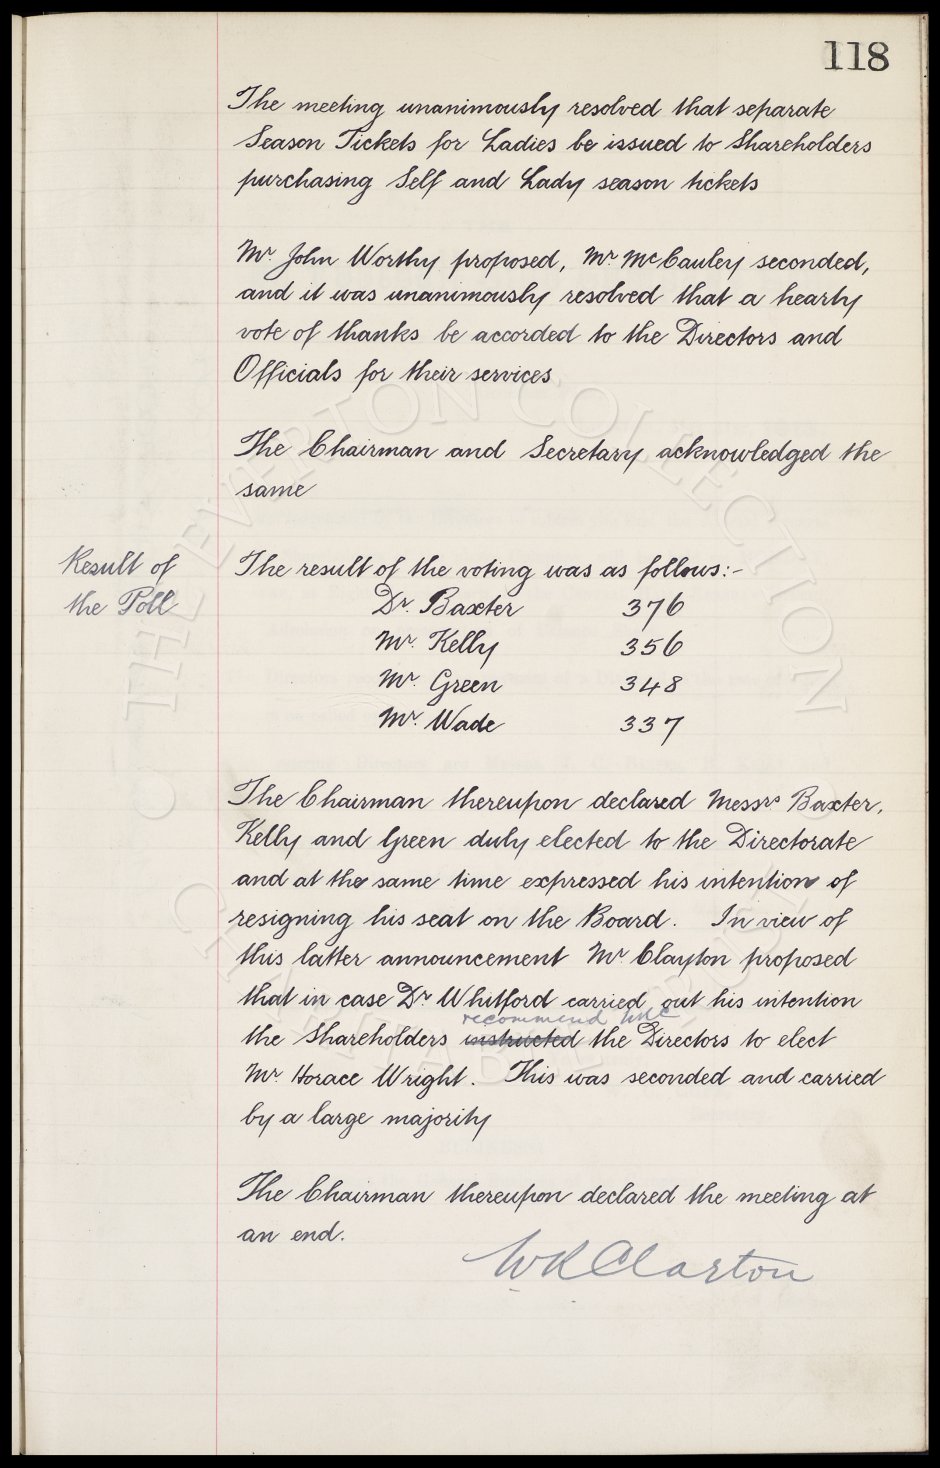 118
The meeting unanimously resolved that separate
Season Tickets for Ladies be issued to Shareholders
purchasing Self and Lady season tickets
Mr. John Worthy proposed, Mr. McCauley seconded,
and it was unanimously resolved that a hearty
vote of thanks be accorded to the Directors and
Officials for their services
The Chairman and Secretary acknowledged the
same
Result of
the Poll
The result of the voting was as follows:-
Dr. Baxter 376
Mr. Kelly 356
Mr. Green 348
Mr. Wade 337
The Chairman thereupon declared Messrs Baxter,
Kelly and Green duly elected to the Directorate
and at the same time expressed his intention of
resigning his seat on the Board. In view of
this latter announcement Mr. Clayton proposed
that in case Dr Whitford carried out his intention
recommend
the Shareholders instructed the Directors to elect
Mr. Horace Wright. This was seconded and carried
by a large majority
The Chairman thereupon declared the meeting at
an end.
THE EVERTON COLLECTION